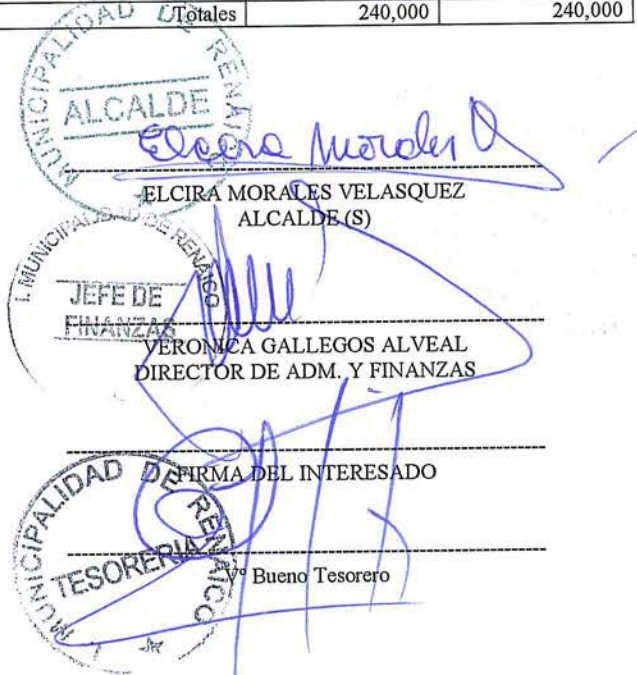 Totales 240,000 240,000
MUNICIPALIDAD DE RENAICO
ALCALDE
Elcira Morales V
ELCIRA MORALES VELASQUEZ
ALCALDE (S)
I. MUNICIPALIDAD DE RENAICO
JEFE DE
FINANZAS
VERONICA GALLEGOS ALVEAL
DIRECTOR DE ADM. Y FINANZAS
FIRMA DEL INTERESADO
I. MUNICIPALIDAD DE RENAICO
TESORERIA
Vº Bueno Tesorero